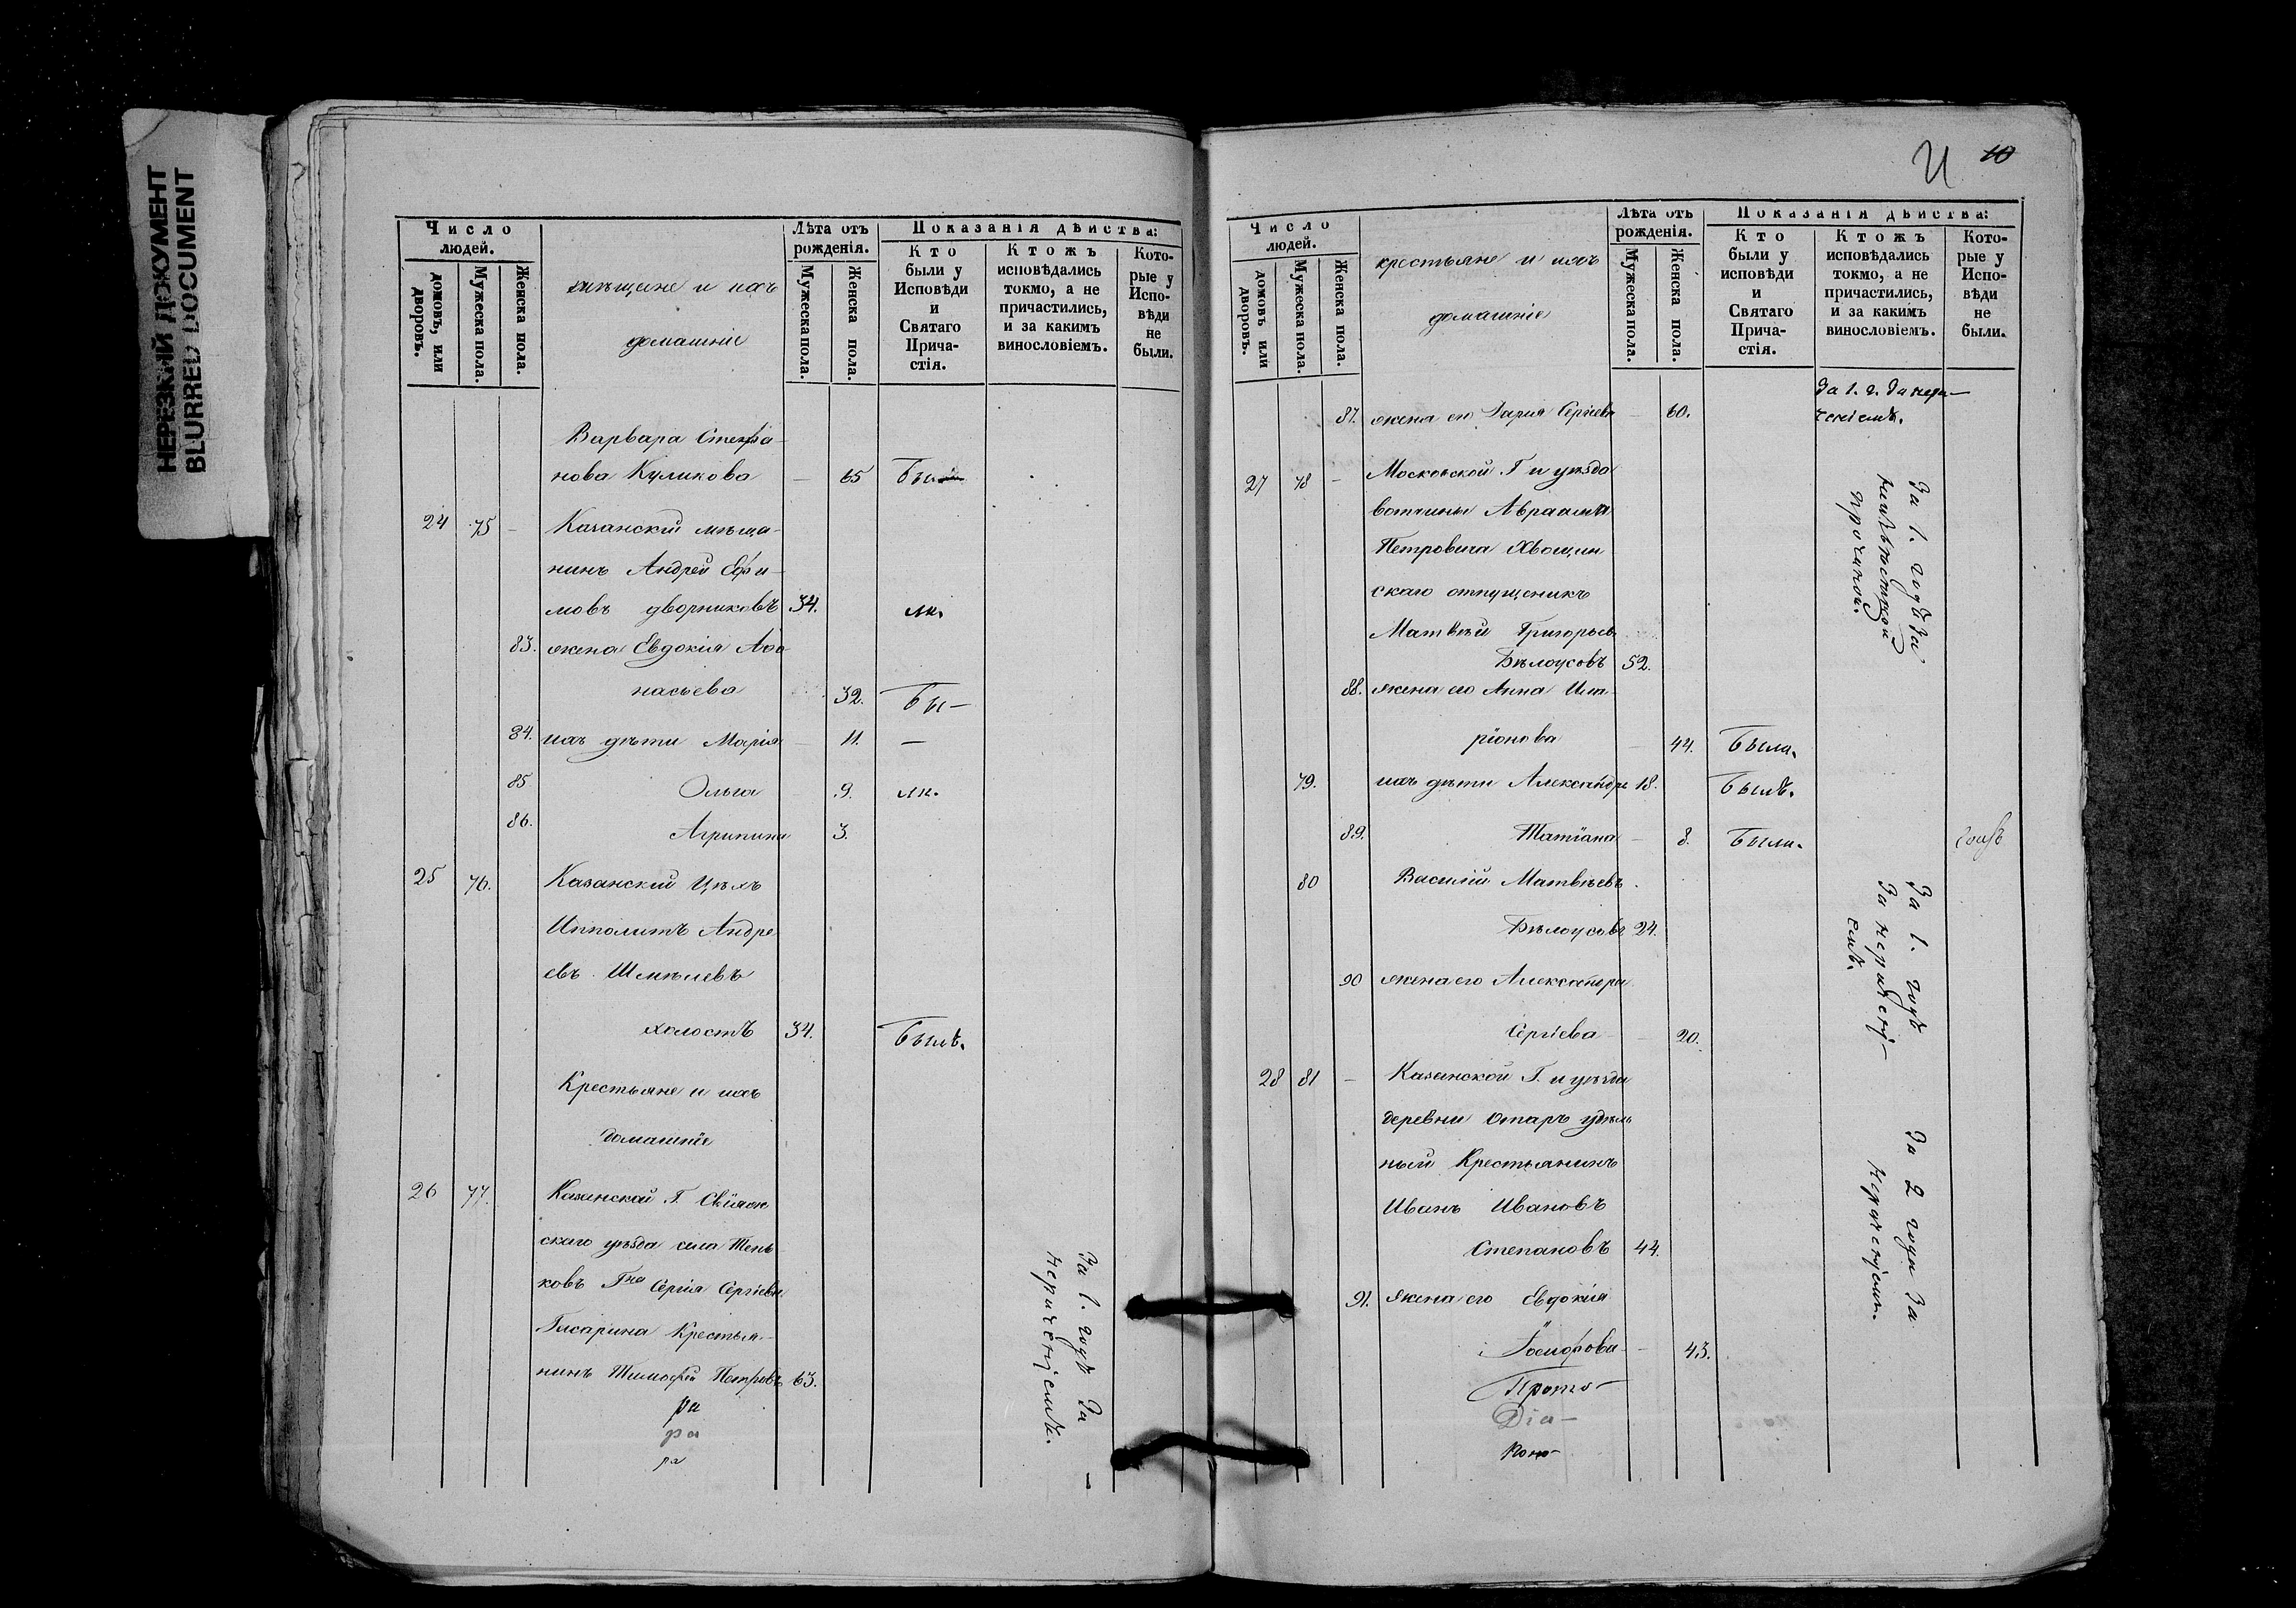 НЕРЕЗКИЙ ДОКУМЕНТ
BLURRED DOCUMENT
Число людей.
домовъ, или дворовъ.
Мужеска пола.
Женска пола.
мѣщане и ихъ
домашніе
Лѣта отъ рожденія.
Мужеска пола.
Женска пола.
Показанія дѣйства:
Кто были у Исповѣди и Святаго Прича-стія.
Ктожъ исповѣдались токмо, а не причастились, и за какимъ винословіемъ.
Кото-рые у Испо-вѣди не были.
Варвара Стефа-
нова Куликова — 65 Бы
24 75 — Казанскій мѣща-
нинъ Андрей Ефи-
мовъ дворниковъ 34. ли.
83. жена Евдокія Афа-
насьева 32. Бы—
84. ихъ дѣти Марія — 11. —
85 Ольга 9. ли.
86. Агрипина 3.
25 76. Казанскій Цѣх.
Ипполитъ Андре
евъ Шмелевъ
холостъ 34. Былъ.
Крестьяне и ихъ
домашніе
26 77. Казанской Г. Свіяж
скаго уѣзда села Тень
ковъ Гна Сергія Сергіева
крестья-
нинъ Тимофей Петровъ 63.
За 1. годъ За
нераченіемъ.
ра
ра
ра
10
Число людей.
домовъ или дворовъ.
Мужеска пола.
Женска пола.
крестьяне и ихъ
домашніе
Лѣта отъ рожденія.
Мужеска пола.
Женска пола.
Показанія дѣйства:
Кто были у исповѣди и Святаго Прича-стія.
Ктожъ исповѣдались токмо, а не причастились, и за какимъ винословіемъ.
Кото-рые у Испо-вѣди не были.
87. жена его Дарья Сергіева — 60. За 1. г. За нера-
ченіемъ.
27 78 — Московской Г и уѣзда
вотчины Авраама
Петровича Хвощин
скаго отпущеникъ
Матвей Григорьев
Бѣлоусовъ 52.
За 1. годъ За
причиной.
88. жена его Анна Ила-
ріонова — 44. Была.
79. ихъ дѣти Александръ 18. Былъ.
89. Татіана — 8. Были.
80 Василій Матвѣевъ
Бѣлоусовъ 24.
За 1. годъ
За нераченi-
емъ.
90 жена его Александра
Сергіева — 20.
28 81 — Казанской Г. и уѣзда
деревни Отаръ удѣль
ный Крестьянинъ
Иванъ Ивановъ
Степановъ 44.
За 2 года За
нераченіемъ.
91. жена его Евдокія
— 43.
Прото-
Діа-
конъ